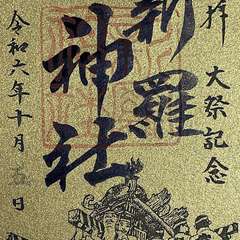 拝
大祭記念
新羅
神社
令和六年十月五日